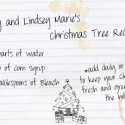 y and Lindsey Marie's
Christmas Tree Rec
arts of water
of corn syrup
ablespoons of Bleach
*add daily or
to keep your Ch
fresh and gree
the hol